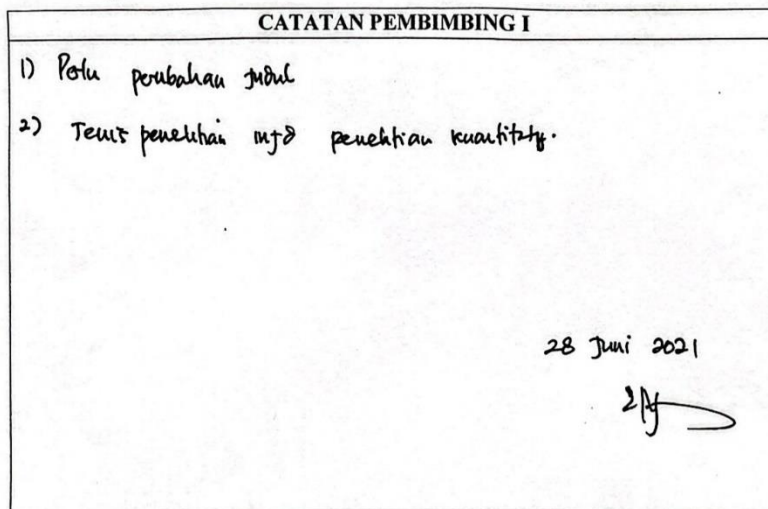 CATATAN PEMBIMBING I
1) Perlu perubahan judul
2) Jenis penelitian mjd penelitian kuantitatif.
28 Juni 2021